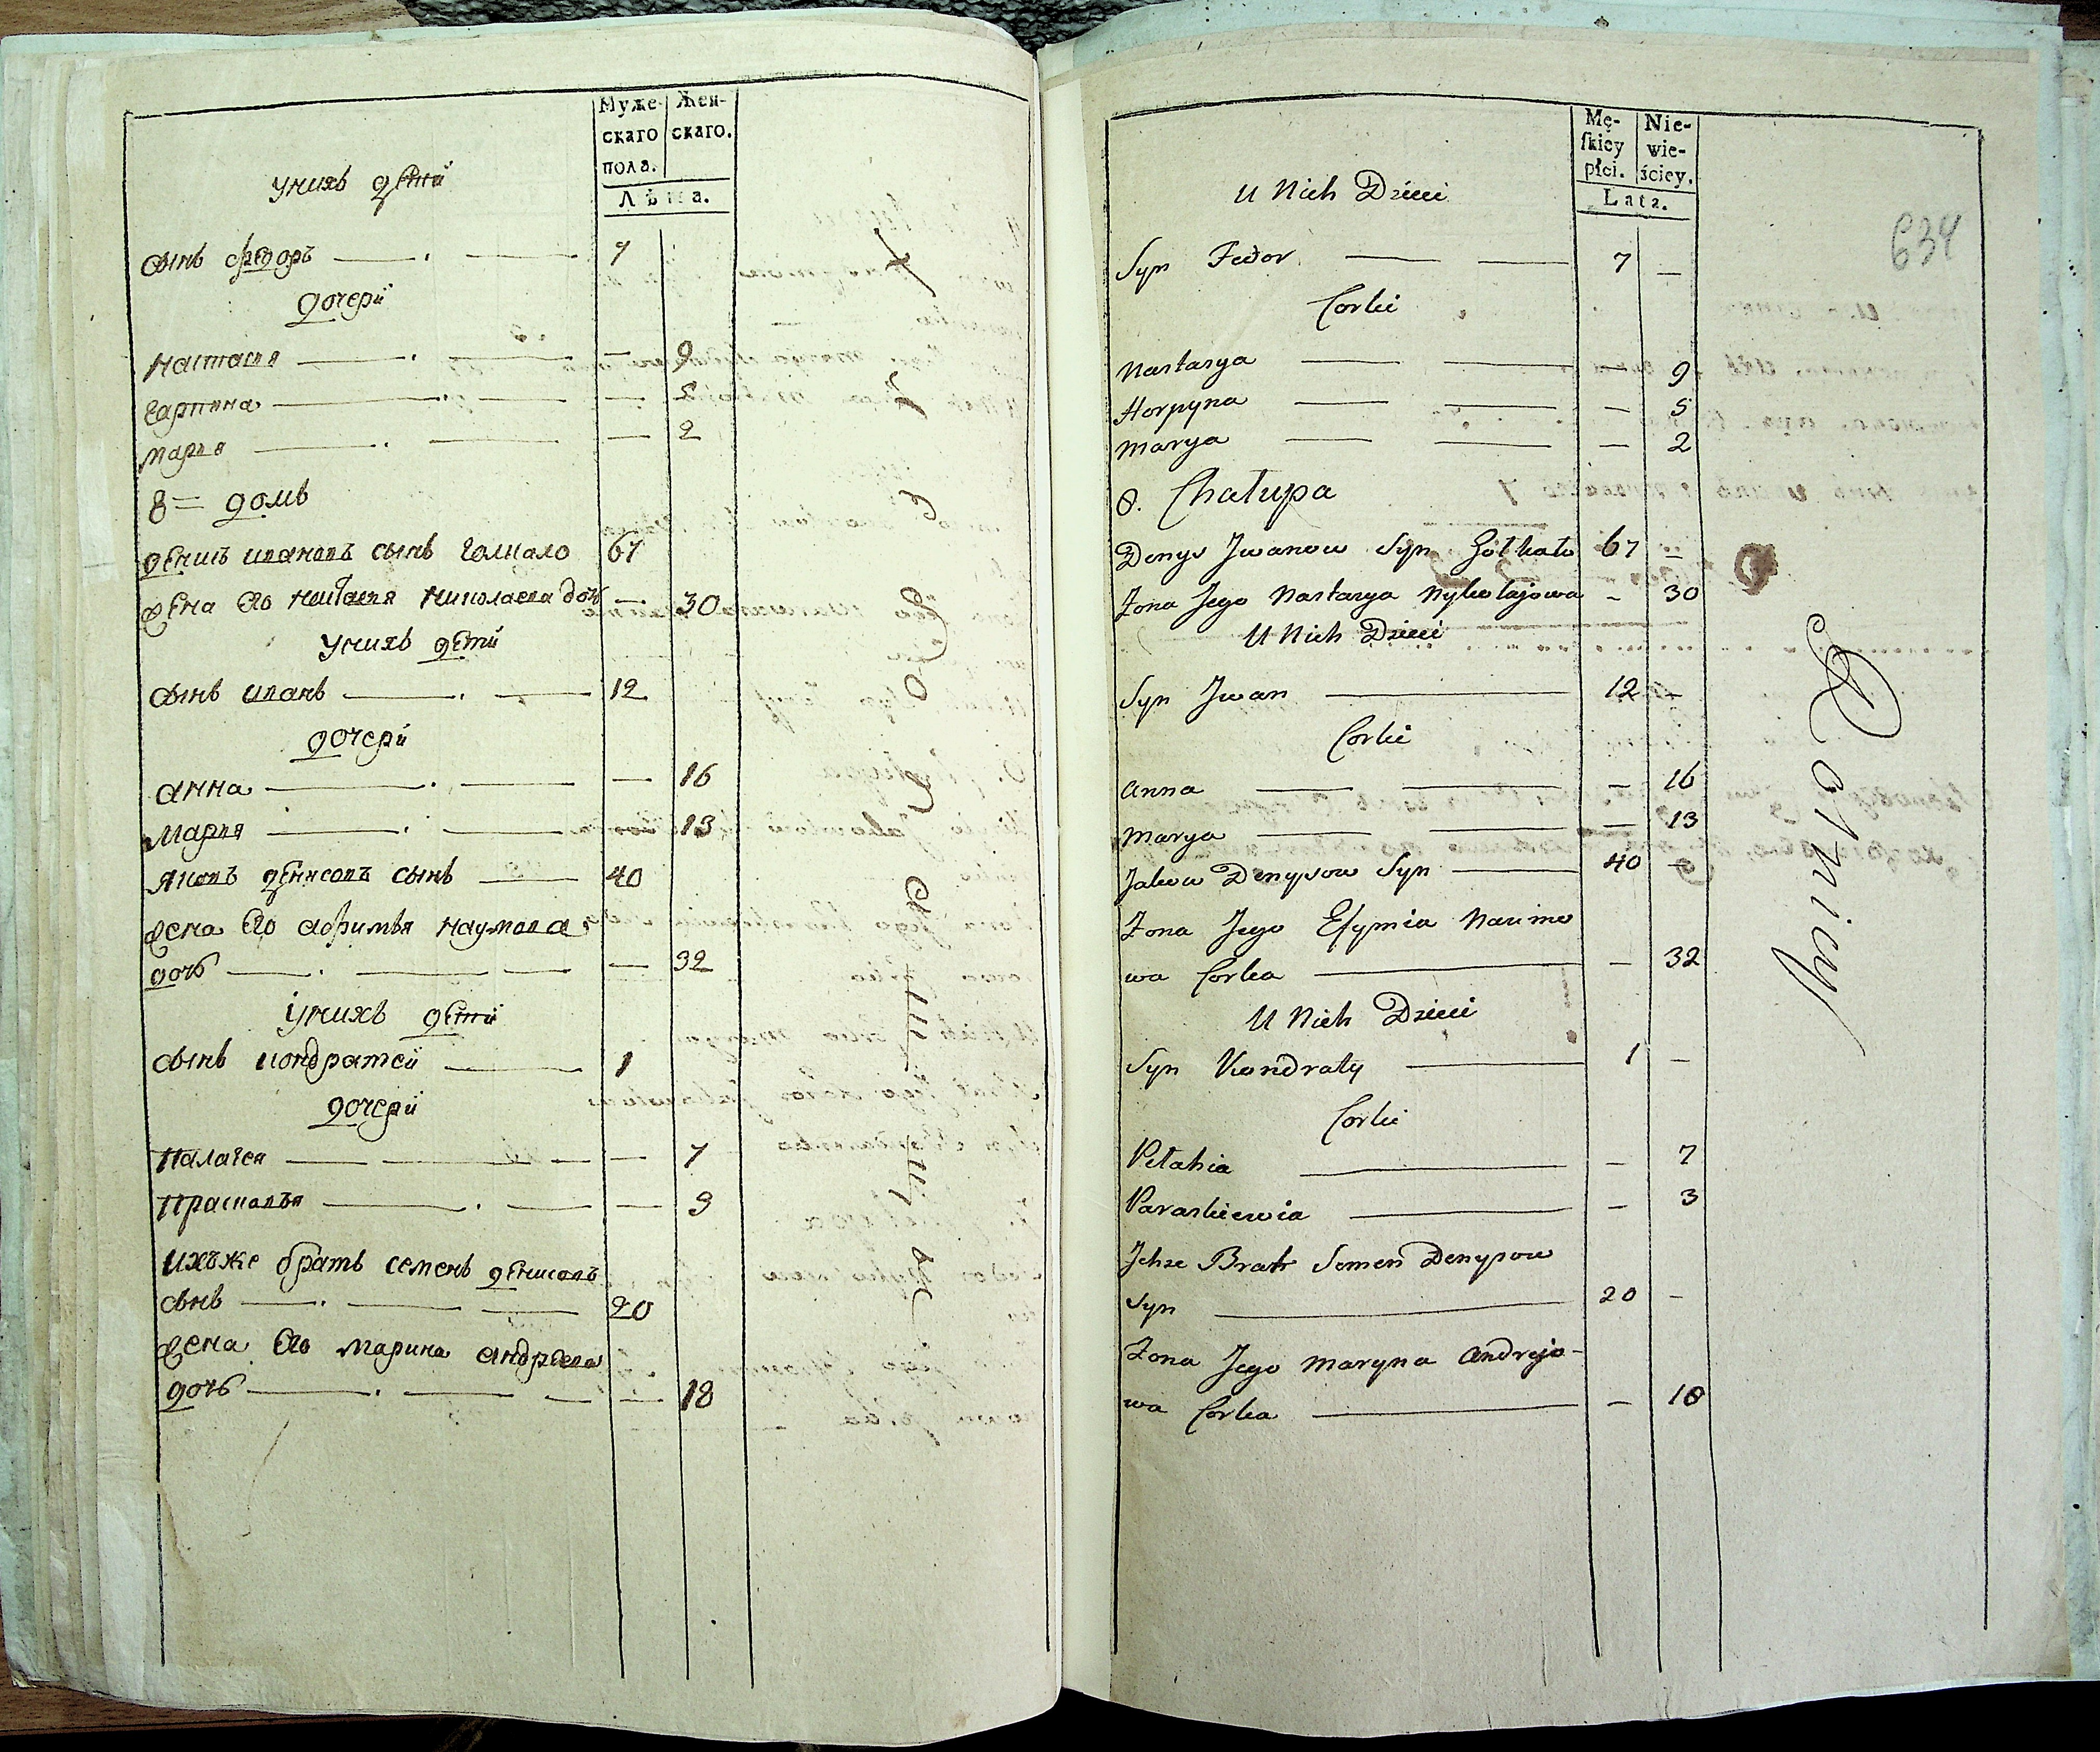 Муже-
скаго
пола.
Жен-
скаго.
Лѣта.
унихъ дѣти
сынъ федоръ 7
дочери
настася — 9
гарпина — 5
маря — 2
8 = домъ
денисъ ивановъ сынъ 67
жена его настася николаева доч — 30
унихъ дѣти
сынъ иванъ 12
дочери
анна — 16
маря — 13
яковъ денисовъ сынъ 40
жена его афимья наумова
дочь — 32
унихъ дѣти
сынъ кондратей 1
дочери
палагея — 7
прасковья — 3
ихъже братъ семенъ денисовъ
сынъ 20
жена его марина андреева
дочь — 18
Mę-
skiey
płci.
Nie-
wie-
ściey.
Lata.
634
U Nich Dzieci
Syn Fedor 7 —
Corki
Nastasya — 9
Horpyna — 5
Marya — 2
8. Chałupa
Denys Jwanow Syn 67 —
Zona Jego Nastasya Nykołajowa — 30
U Nich Dzieci
Syn Jwan 12 —
Corki
Anna — 16
Marya — 13
Jakow Denysow Syn 40 —
Zona Jego Efymia Naumo
wa Corka — 32
U Nich Dzieci
Syn Kondraty 1 —
Corki
Pełahia — 7
Paraskiewia — 3
Jchze Brat Semen Denysow
Syn 20 —
Zona Jego Maryna Andrejo-
wa Corka — 18
Rolnicy